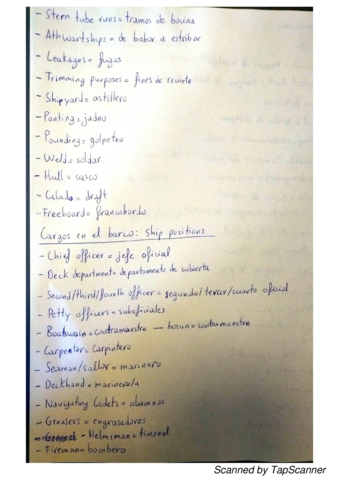 - Stern tube runs = tramos de bocina
- Athwartships = de babor a estribor
- Leakages = fugas
- Trimming purposes = fines de recorte
- Shipyard = astillero
- Panting = jadeo
- Pounding = golpeteo
- Weld = soldar
- Hull = casco
- Calado = draft
- Freeboard = francobordo
Cargos en el barco: ship positions
- Chief officer = jefe oficial
- Deck department = departamento de cubierta
- Second/third/fourth officer = segundo/tercer/cuarto oficial
- Petty officers = suboficiales
- Boatswain = contramaestre — bosun = contramaestre
- Carpenter = carpintero
- Seaman/sailor = marinero
- Deckhand = marinero/a
- Navigating Cadets = alumnos.
- Greasers = engrasadores
- Helmsman = timonel
- Fireman = bombero
Scanned by TapScanner